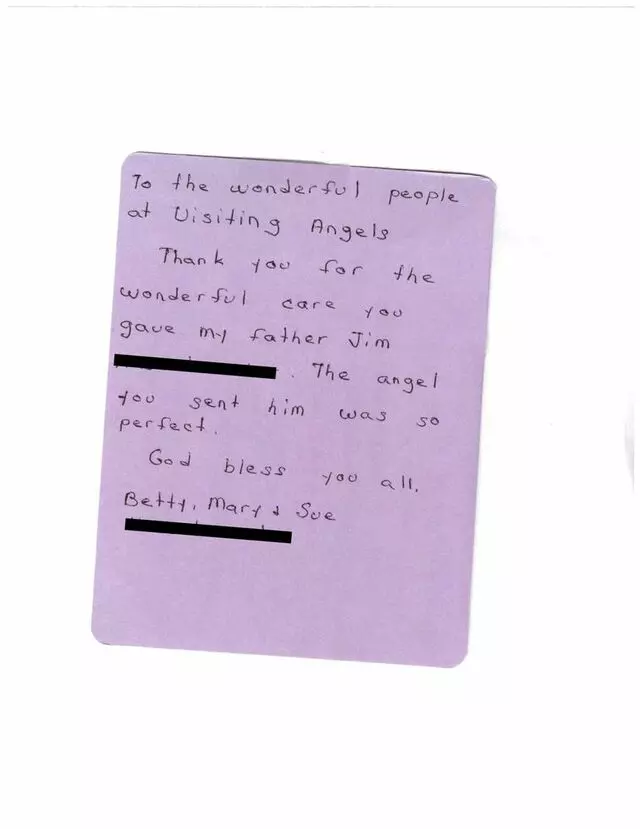 To the wonderful people
at Visiting Angels
Thank you for the
wonderful care you
gave my father Jim
. The angel
you sent him was so
perfect.
God bless you all.
Betty, Mary & Sue